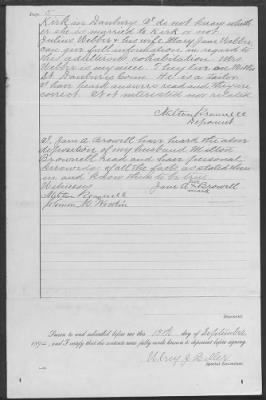 Page 5
Kirk in Danbury I do not know wheth
er she is married to Kirk or not.
Julius Webber & his wife Mary Jane Webber
can give full information in regard to
this adulterous cohabitation. Mrs.
Webber is my niece. They live on
St. Danbury Conn. He is a tailor.
I have heard answers read and they are
correct. I not interested nor related
Milton Brownell
Deponent
I, Jane A Browell have heard the above
deposition of my husband Milton
Brownell read and have personal
knowledge of all the facts as stated there
in and know them to be true
Witnesses Jane A x Browell
mark
Milton Brownell
Deponent.
Sworn to and subscribed before me this 19th day of September
189 , and I certify that the contents were fully made known to deponent before signing.
Special Examiner.